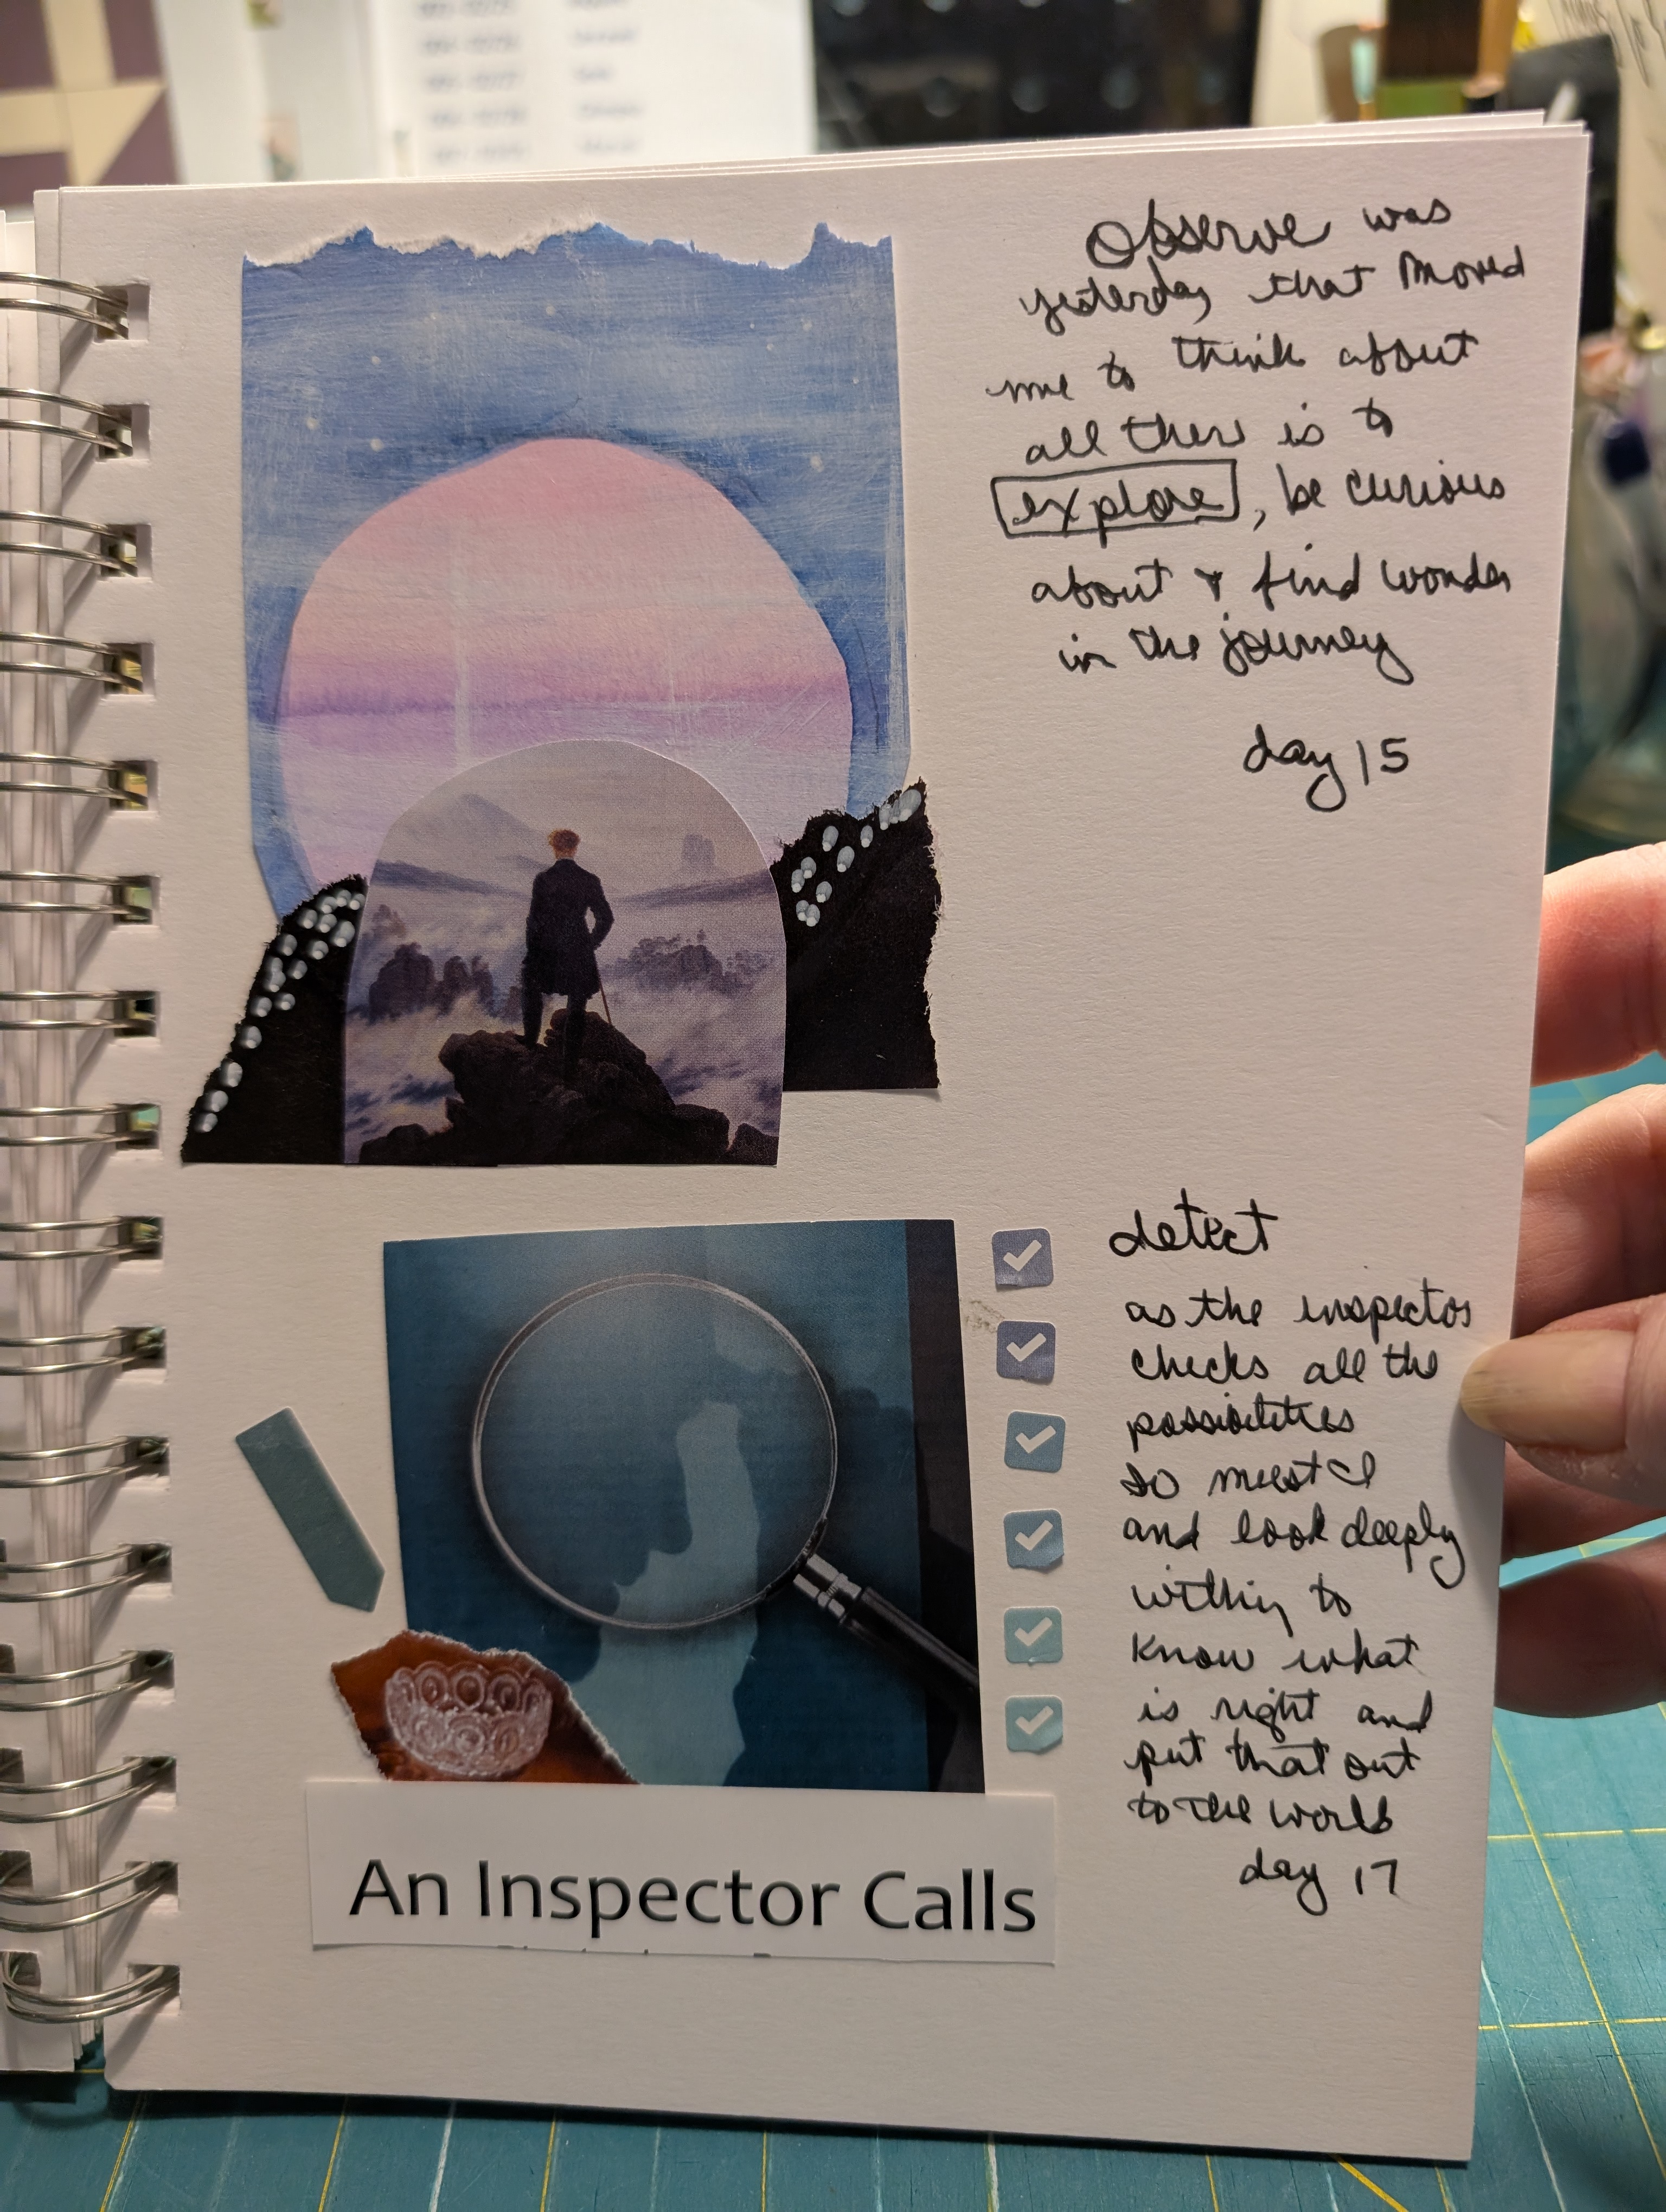 Observe was
yesterday that moved
me to think about
all there is to
explore, be curious
about & find wonder
in the journey
day 15
detect
as the inspector
checks all the
possibilities
so must I
and look deeply
within to
know what
is right and
put that out
to the world
day 17
An Inspector Calls